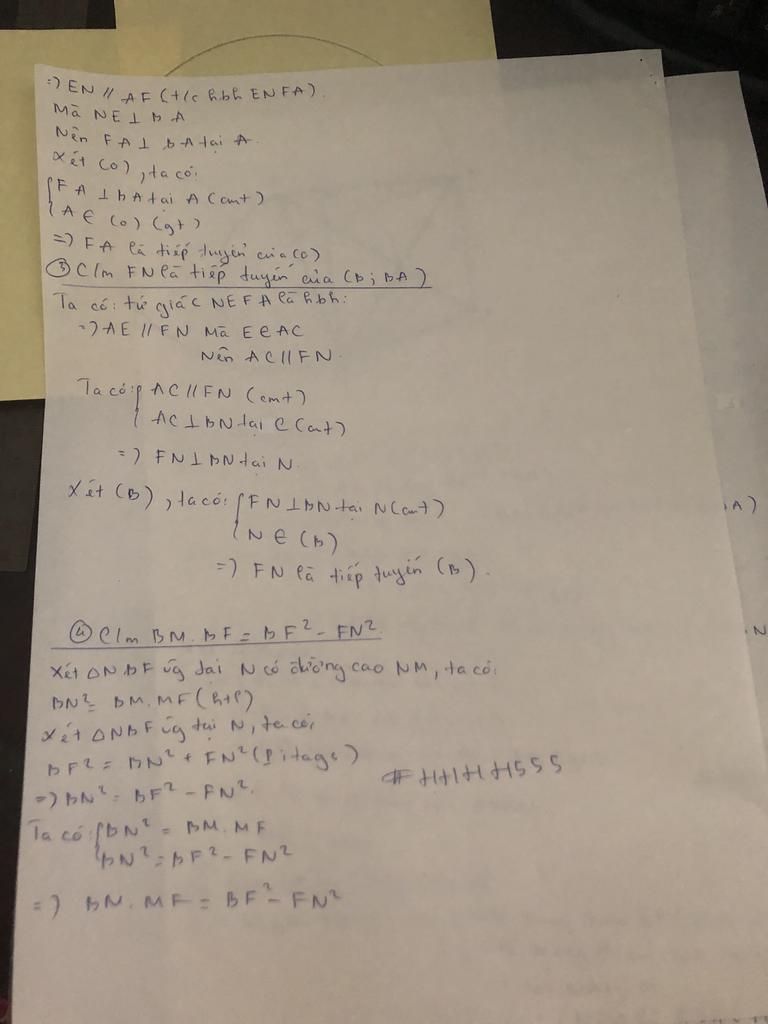 =) EN // AF (t/c hbh ENFA).
Mà NE ⊥ BA
Nên FA ⊥ BA tại A.
Xét (O), ta có:
{ FA ⊥ BA tại A (cmt)
A ∈ (O) (gt)
=) FA là tiếp tuyến của (O)
③ C/m FN là tiếp tuyến của (B; BA)
Ta có: tứ giác NEFA là hbh:
=) AE // FN Mà E ∈ AC
Nên AC // FN.
Ta có: { AC // FN (cmt)
AC ⊥ BN tại C (cmt)
=) FN ⊥ BN tại N.
Xét (B), ta có: { FN ⊥ BN tại N (cmt)
N ∈ (B)
=) FN là tiếp tuyến (B).
A)
N
④ C/m BM. BF = BF² - FN²
Xét △NBF vg tại N có đường cao NM, ta có:
BN² = BM. MF (htl)
Xét △NBF vg tại N, ta có:
BF² = BN² + FN² (Pitago)
=) BN² = BF² - FN².
#HHHH555
Ta có: { BN² = BM. MF
BN² = BF² - FN²
=) BM. MF = BF² - FN²